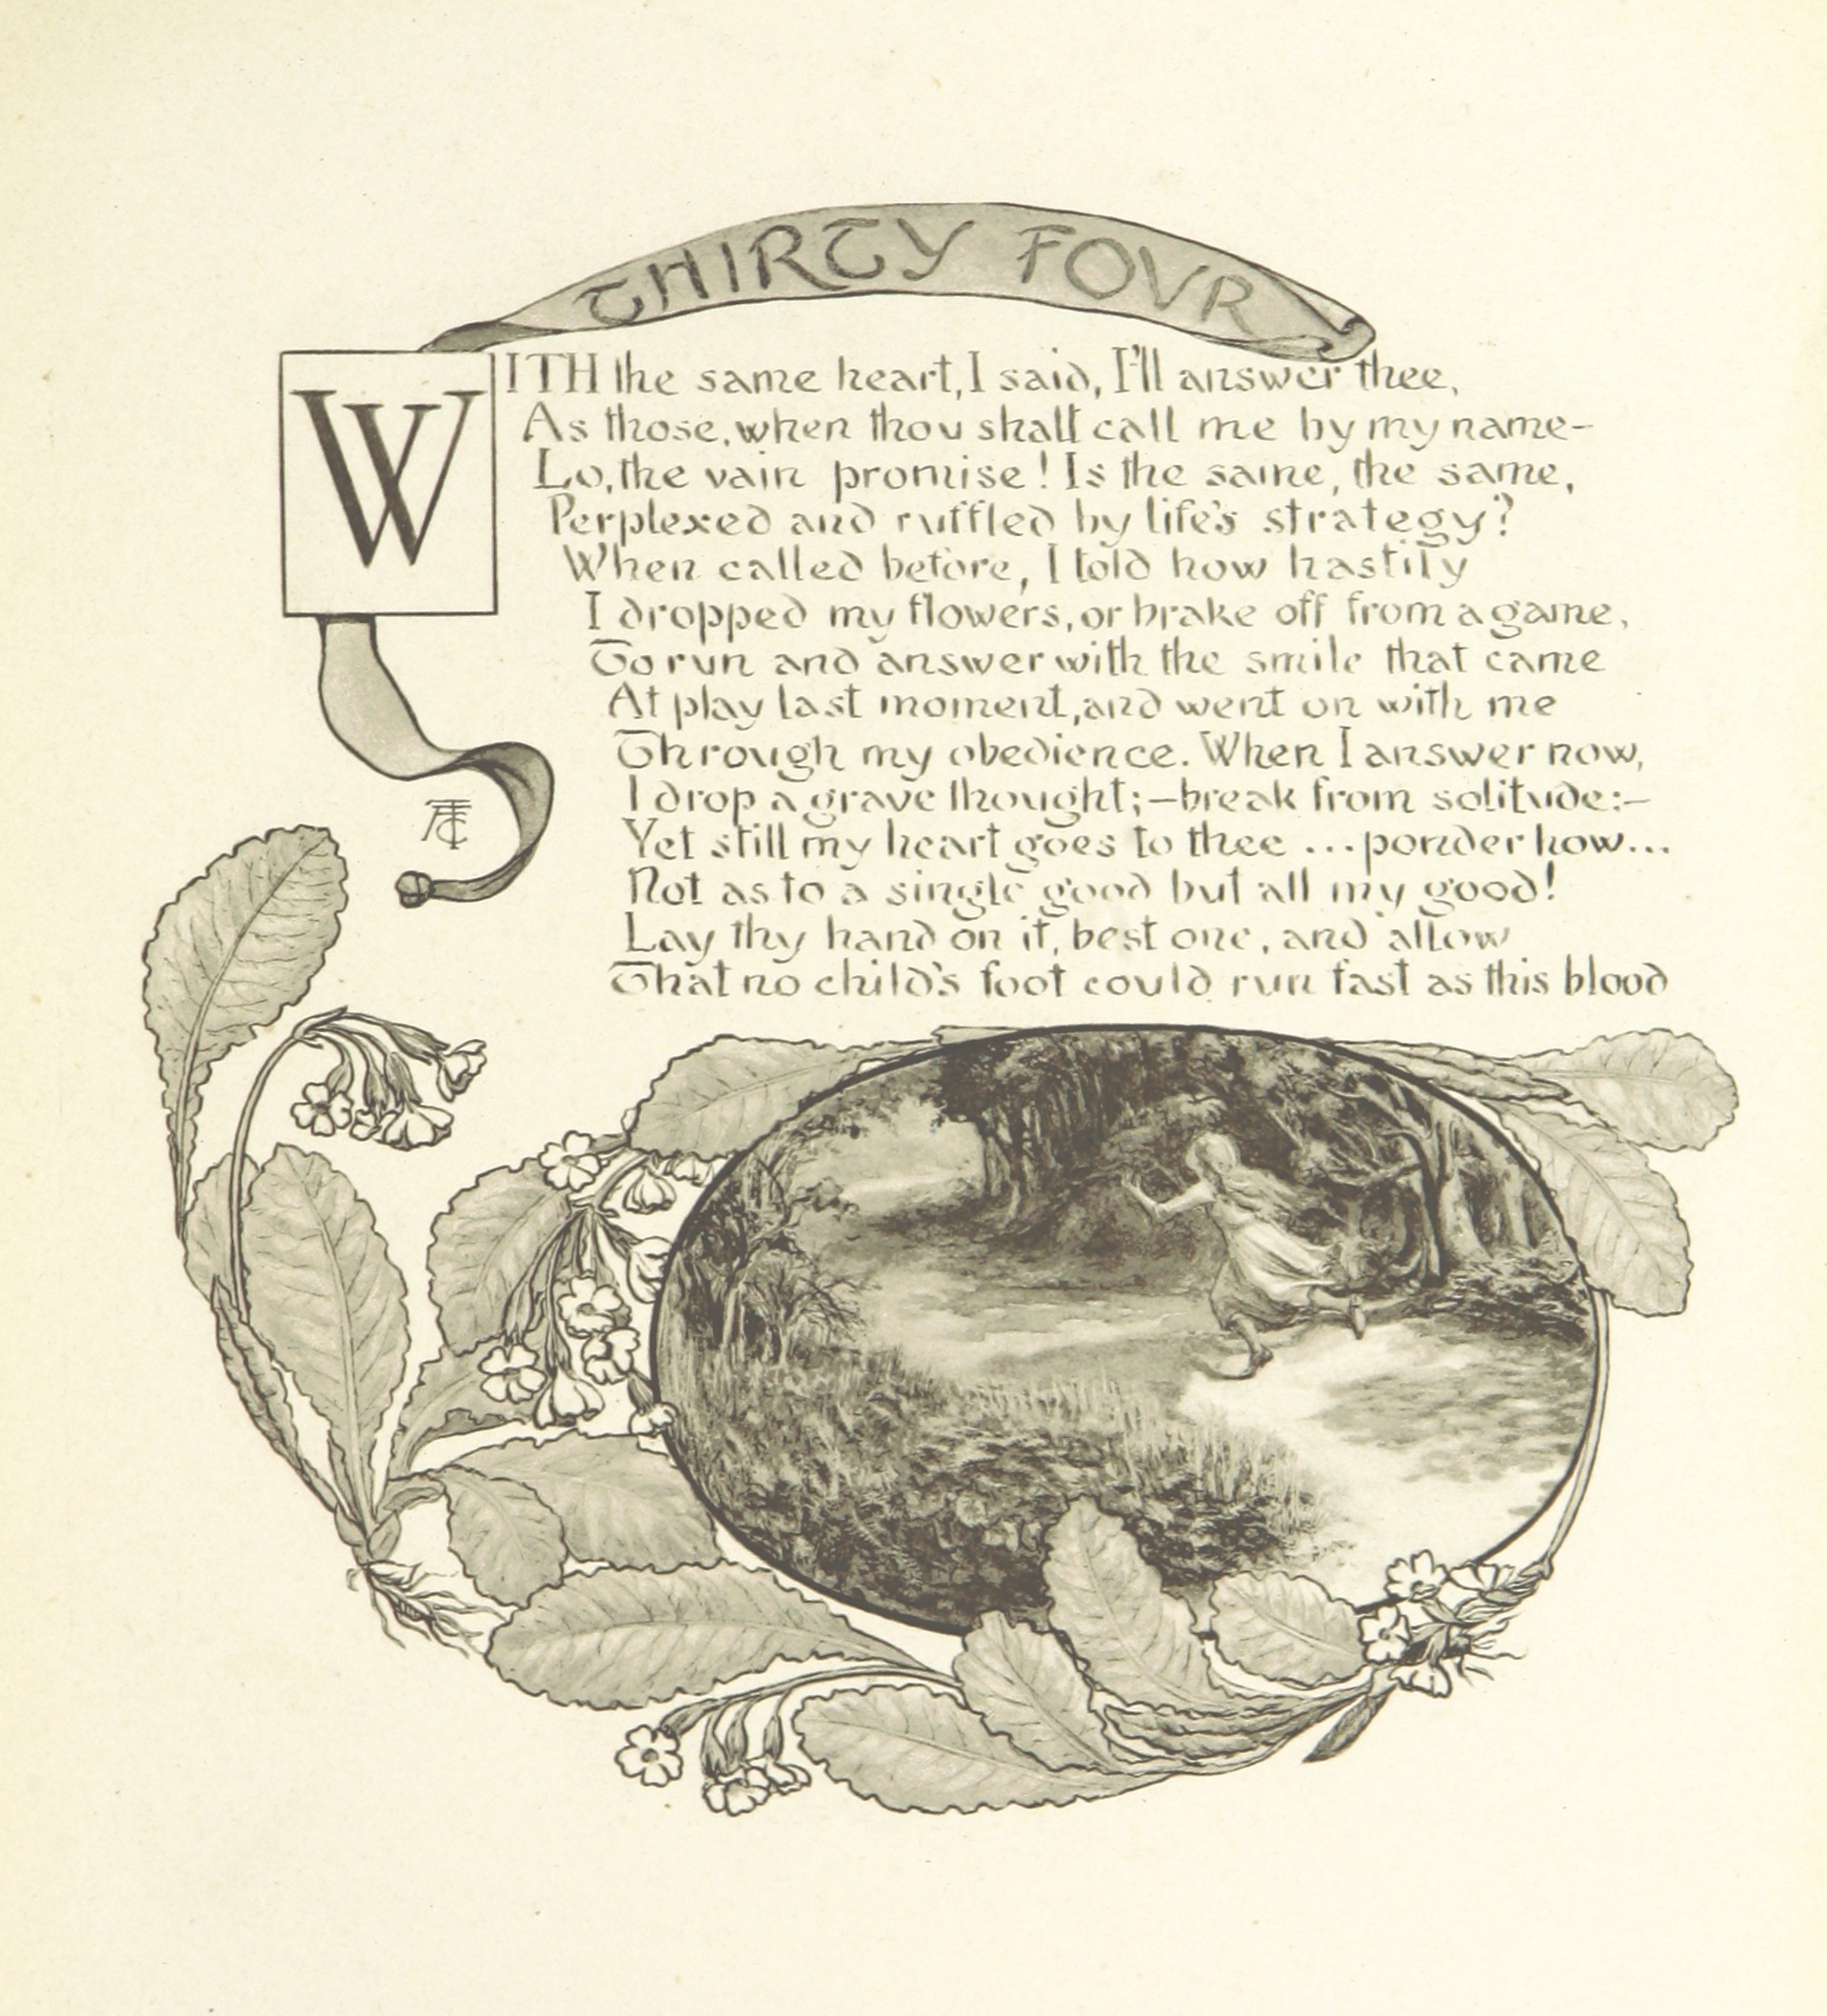 THIRTY FOVR
WITH the same heart, I said, I'll answer thee,
As those, when thou shalt call me by my name-
Lo, the vain promise! Is the same, the same,
Perplexed and ruffled by life's strategy?
When called before, I told how hastily
I dropped my flowers, or brake off from a game,
To run and answer with the smile that came
At play last moment, and went on with me
Through my obedience. When I answer now,
I drop a grave thought;—break from solitude:—
Yet still my heart goes to thee ... ponder how...
Not as to a single good but all my good!
Lay thy hand on it, best one, and allow
That no child's foot could run fast as this blood